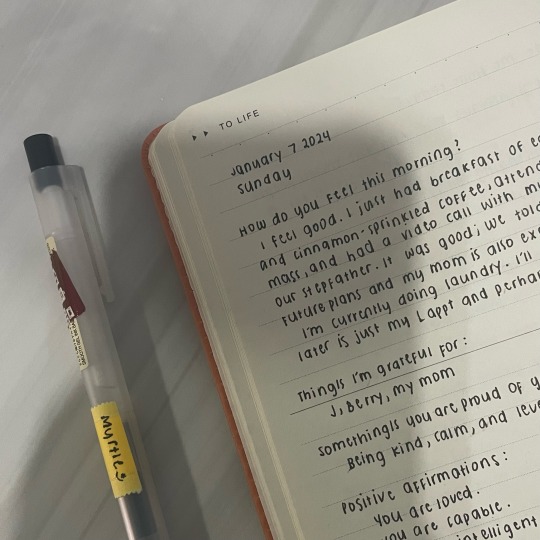 ▸ ▸ TO LIFE
January 7 2024
Sunday
How do you feel this morning?
I feel good. I just had breakfast of
and cinnamon-sprinkled coffee, attend
mass, and had a video call with
our stepfather. It was good; we told
future plans and my mom is also
I'm currently doing laundry. I'll
later is just my L appt and perhap
Things I'm grateful for:
J, Berry, my mom
Somethings you are proud of
Being kind, calm, and
Positive Affirmations:
You are loved.
You are capable.
intelligent
Myrtle